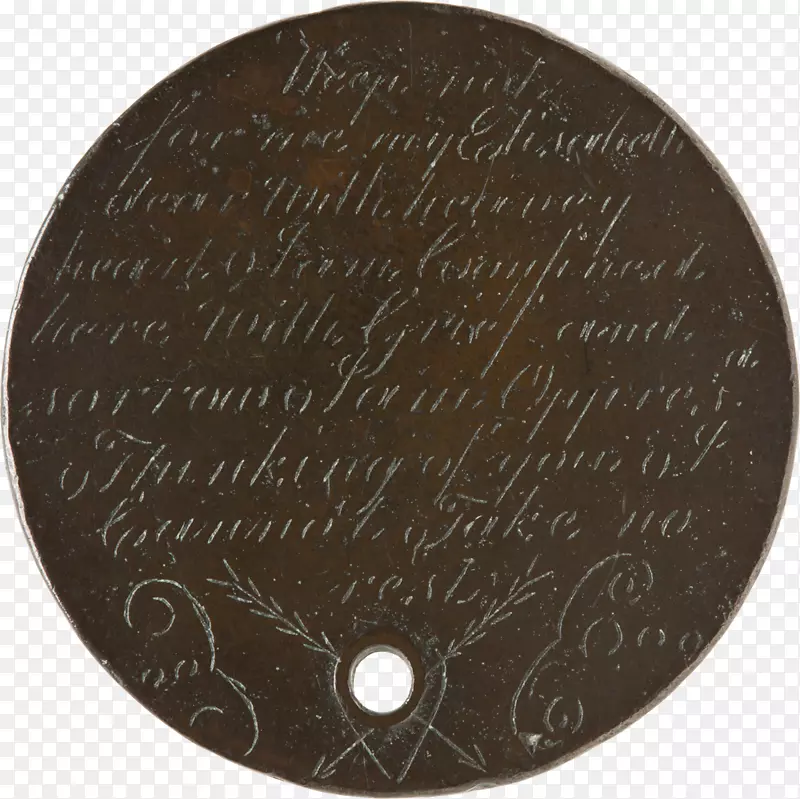 Weep not
for me my Elisabeth
dear With heavey
heart I am Confined
here With Grief and
sorrow I am Oppres
Thinking of you I
Cannot Take no
rest